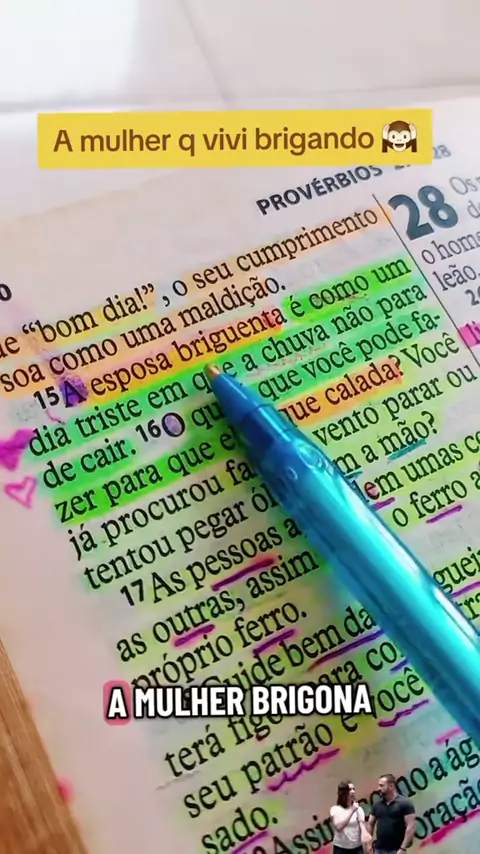 A mulher q vivi brigando 🙉
PROVÉRBIOS 28
de “bom dia!”, o seu cumprimento
soa como uma maldição.
15 A esposa briguenta é como um
dia triste em que a chuva não para
de cair. 16 O que você pode fa-
zer para que ela fique calada? Você
já procurou fa vento parar ou
tentou pegar ól m a mão?
17 As pessoas a em umas co
as outras, assim o ferro a
próprio ferro.
Cuide bem da
terá figo para co
seu patrão e você
sado.
Assim como a ág
oração
28 Os
de
o home
leão.
A MULHER BRIGONA